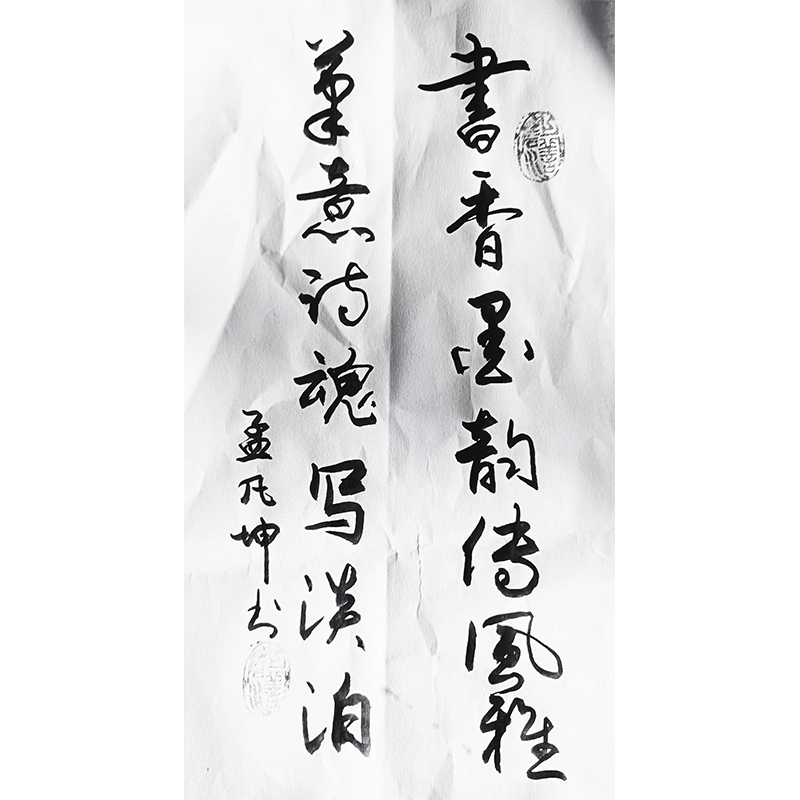 書香墨韵传風雅
筆意诗魂写淡泊
孟凡坤书